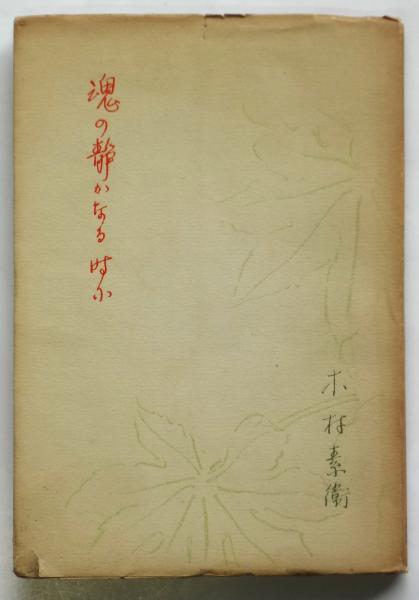 魂の静かなる時に
木村素衞